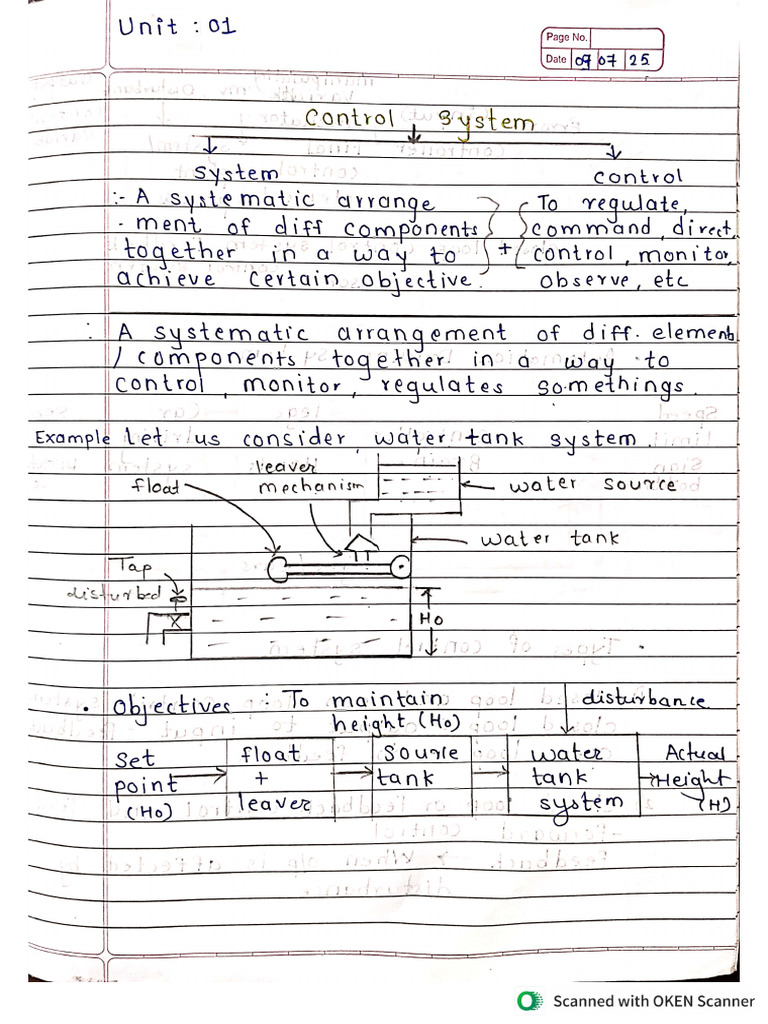 Unit : 01
Page No.
Date 09 07 25
Control System
System
control
:- A systematic arrange
- ment of diff components
together in a way to
achieve certain objective.
+
To regulate,
command, direct,
control, monitor,
observe, etc
: A systematic arrangement of diff. element
/ components together in a way to
control, monitor, regulates somethings.
Example let us consider water tank system.
float
leaver
mechanism
water source
water tank
Tap
disturbed
X
Ho
• Objectives : To maintain
height (Ho)
disturbance
Set
point
(Ho)
float
+
leaver
Sourse
tank
water
tank
system
Actual
Height
(H)
Scanned with OKEN Scanner